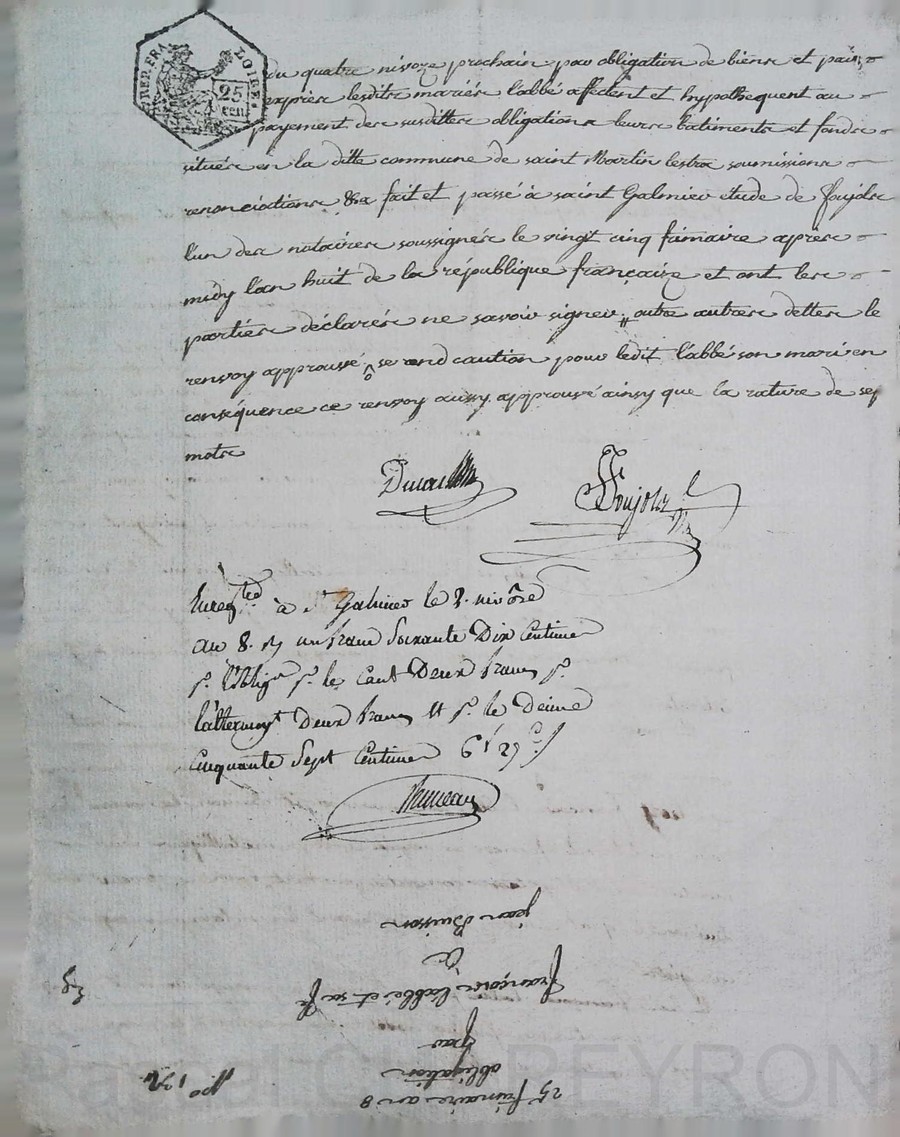 REP. FRA.
LOIRE.
25
CEN.
du quatre nivoze prochain pour obligation de biens et pair
exprèr lesdits mariés l'abbé affectent et hypothequent au
payement des susdittes obligations leurs batiments et fonds
situés en la ditte commune de saint Martin lestra soumissions
renonciations &a fait et passé à saint Galmier etude de Poujols
l'un des notaires soussignés le vingt cinq frimaire après
midy l'an huit de la république françaize et ont les
parties déclarés ne savoir signer, outre autres dettes le
renvoy approuvé, se rend caution pour ledit l'abbé son mari en
conséquence ce renvoy aussy approuvé ainsy que la rature de sep
mots
Poujols
Enregtré à St Galmier le 2. nivose
an 8. un franc Soixante Dix Centimes
pr. l'oblign pr. le Caut Deux francs pr.
l'attermoyt Deux francs pr. le Décime
Cinquante Sept Centimes 6f 27c
25 frimaire an 8
obligation
par
françois l'abbé et sa fe
à
jean Buisson
No 172
Pascal CHAPEYRON